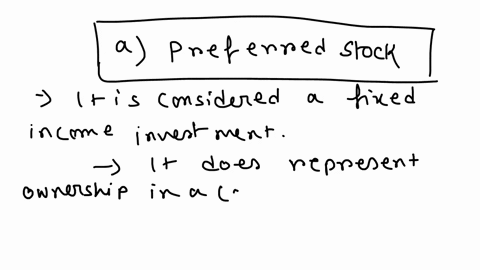 a) Preferred Stock
→ It is considered a fixed
income investment.
→ It does represent
ownership in a (